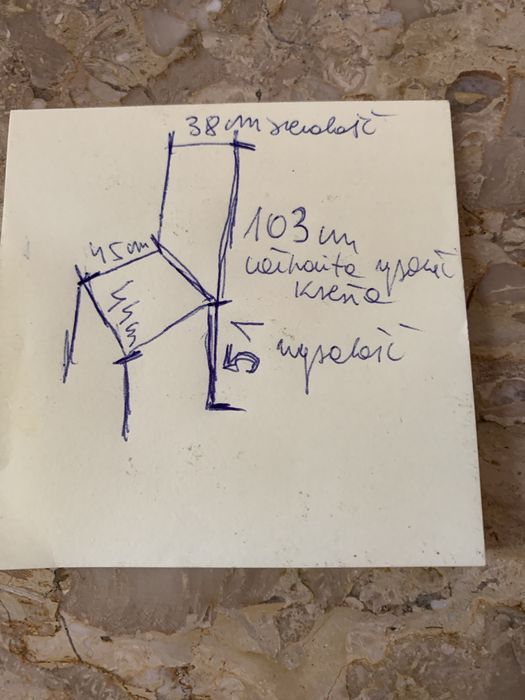 38 cm szerokość
103 cm
całkowita wysokość
krzesła
45 cm
51 wysokość